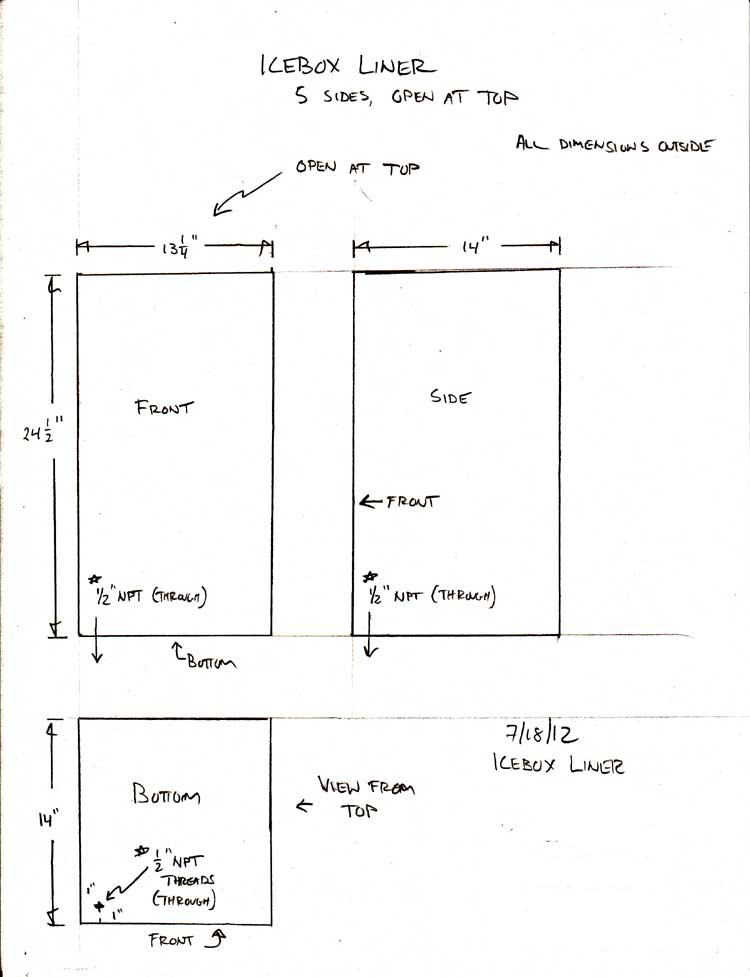 ICEBOX LINER
5 SIDES, OPEN AT TOP
ALL DIMENSIONS OUTSIDE
OPEN AT TOP
13 1/4"
14"
24 1/2"
FRONT
SIDE
← FRONT
☆
1/2" NPT (THROUGH)
☆
1/2" NPT (THROUGH)
BOTTOM
7/18/12
ICEBOX LINER
14"
BOTTOM
← VIEW FROM
TOP
☆ 1/2" NPT
THREADS
(THROUGH)
1"
1"
FRONT